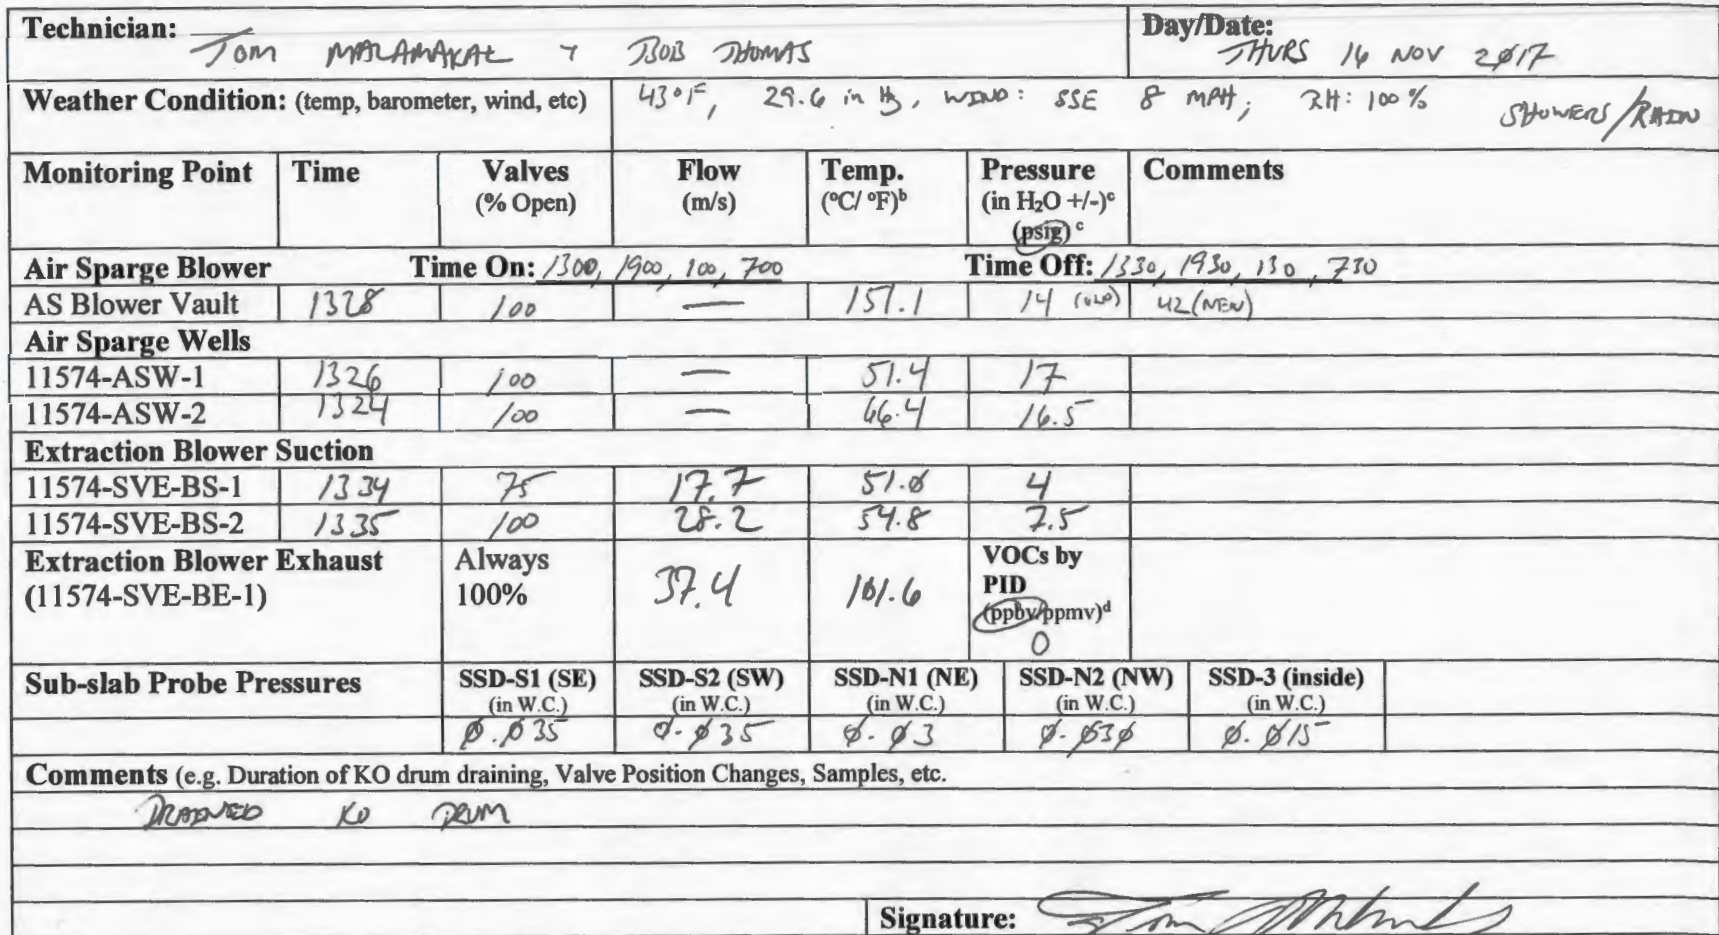 Technician: Tom MALAMAKAL + BOB THOMAS
Day/Date: THURS 16 NOV 2017
Weather Condition: (temp, barometer, wind, etc) 43°F, 29.6 in Hg, WIND: SSE 8 MPH; RH: 100% SHOWERS/RAIN
Monitoring Point Time Valves Flow Temp. Pressure Comments
(% Open) (m/s) (°C/ °F)b (in H2O +/-)c
(psig) c
Air Sparge Blower Time On: 1300, 1900, 100, 700 Time Off: 1330, 1930, 130, 730
AS Blower Vault 1328 100 — 151.1 14 (OLD) 42 (NEW)
Air Sparge Wells
11574-ASW-1 1326 100 — 51.4 17
11574-ASW-2 1324 100 — 66.4 16.5
Extraction Blower Suction
11574-SVE-BS-1 1334 75 17.7 51.0 4
11574-SVE-BS-2 1335 100 28.2 54.8 7.5
Extraction Blower Exhaust Always VOCs by
(11574-SVE-BE-1) 100% 37.4 101.6 PID
(ppbv/ppmv)d
0
Sub-slab Probe Pressures SSD-S1 (SE) SSD-S2 (SW) SSD-N1 (NE) SSD-N2 (NW) SSD-3 (inside)
(in W.C.) (in W.C.) (in W.C.) (in W.C.) (in W.C.)
0.035 0.035 0.03 0.030 0.015
Comments (e.g. Duration of KO drum draining, Valve Position Changes, Samples, etc.
DRAINED KO DRUM
Signature: Tom